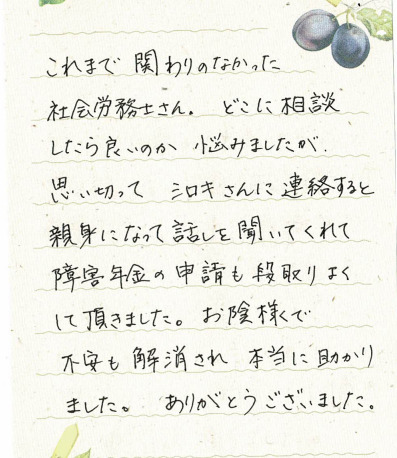 これまで 関わりのなかった
社会労務士さん. どこに相談
したら良いのか 悩みましたが.
思い切って シロキさんに連絡すると
親身になって話しを聞いてくれて
障害年金の申請も段取りよく
して頂きました。お陰様で
不安も解消され 本当に助かり
ました。 ありがとうございました。